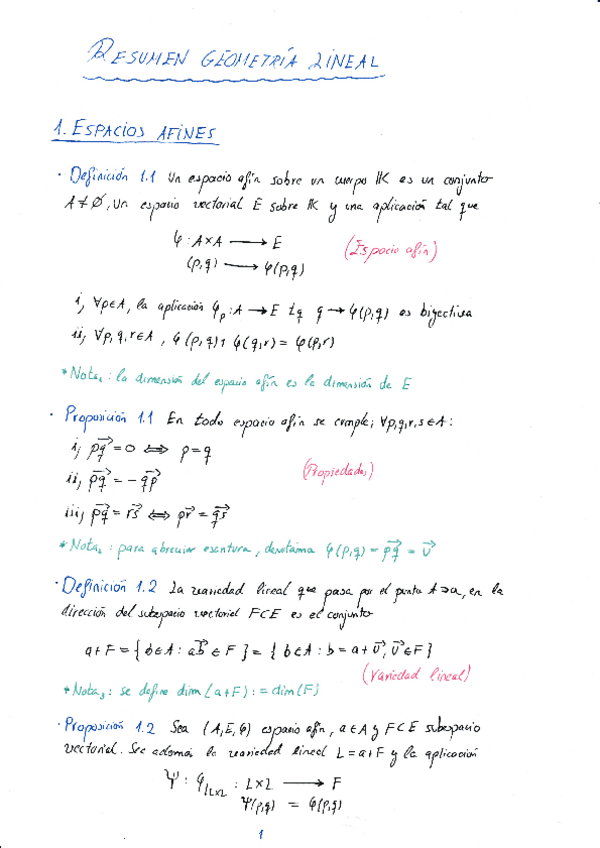 RESUMEN GEOMETRÍA LINEAL
1. ESPACIOS AFINES
· Definición 1.1 Un espacio afín sobre un cuerpo 𝕂 es un conjunto
A ≠ ∅, un espacio vectorial E sobre 𝕂 y una aplicación tal que
φ : A×A ⟶ E
(p,q) ⟶ φ(p,q)
(Espacio afín)
i) ∀p∈A, la aplicación φₚ : A → E tq q → φ(p,q) es biyectiva
ii) ∀p,q,r∈A, φ(p,q) + φ(q,r) = φ(p,r)
*Nota₁: la dimensión del espacio afín es la dimensión de E
· Proposición 1.1 En todo espacio afín se cumple; ∀p,q,r,s∈A:
i) p⃗q = 0 ⟺ p = q
ii) p⃗q = - q⃗p
(Propiedades)
iii) p⃗q = r⃗s ⟺ p⃗r = q⃗s
*Nota₂: para abreviar escritura, denotamos φ(p,q) = p⃗q = v⃗
· Definición 1.2 La variedad lineal que pasa por el punto A∋a, en la
dirección del subespacio vectorial F⊂E es el conjunto
a+F = { b∈A : a⃗b ∈ F } = { b∈A : b = a + v⃗, v⃗ ∈ F }
(Variedad lineal)
*Nota₃: se define dim(a+F) := dim(F)
· Proposición 1.2 Sea (A,E,φ) espacio afín, a∈A y F⊂E subespacio
vectorial. Sea además la variedad lineal L = a+F y la aplicación
Ψ : φ|L×L : L×L ⟶ F
Ψ(p,q) = φ(p,q)
1